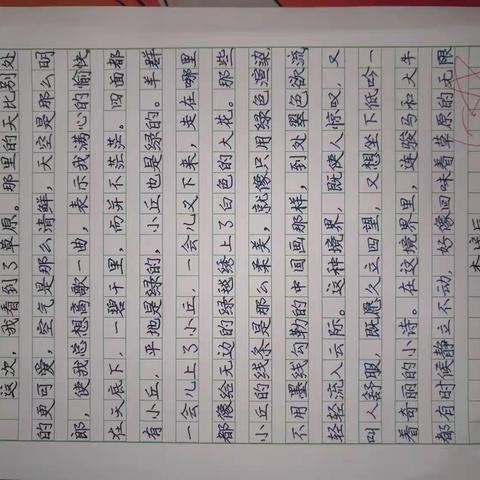 这次，我看到了草原。那里的天比别处
的更可爱，空气是那么清鲜，天空是那么明
郎，使我总想高歌一曲，表示我满心的愉快。
在天底下，一碧千里，而并不茫茫。四面都
有小丘，平地是绿的，小丘也是绿的。羊群
一会儿上了小丘，一会儿又下来，走在哪里
都像给无边的绿毯绣上了白色的大花。那些
小丘的线条是那么柔美，就像只用绿色渲染，
不用墨线勾勒的中国画那样，到处翠色欲流，
轻轻流入云际。这种境界，既使人惊叹，又
叫人舒服，既愿久立四望，又想坐下低吟一
首奇丽的小诗。在这境界里，连骏马和大牛
都有时候静立不动，好像回味着草原的无限